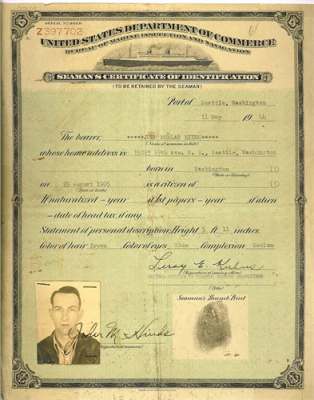 SERIAL NUMBER
Z397702
UNITED STATES DEPARTMENT OF COMMERCE
BUREAU OF MARINE INSPECTION AND NAVIGATION
SEAMAN'S CERTIFICATE OF IDENTIFICATION
(TO BE RETAINED BY THE SEAMAN)
Port of Seattle, Washington
11 May 19 44
The bearer,
whose home address is Ave. Seattle, Washington
born in Washington
on 25 August 1905 is a citizen of
If naturalized - year 1st papers - year if alien
- state of head tax, if any
Statement of personal description: Height 5 ft 11 inches.
Color of hair Brown Color of eyes Blue Complexion Medium
Leroy E.
(Title)
Seaman's Thumb Print
John M. Hinds